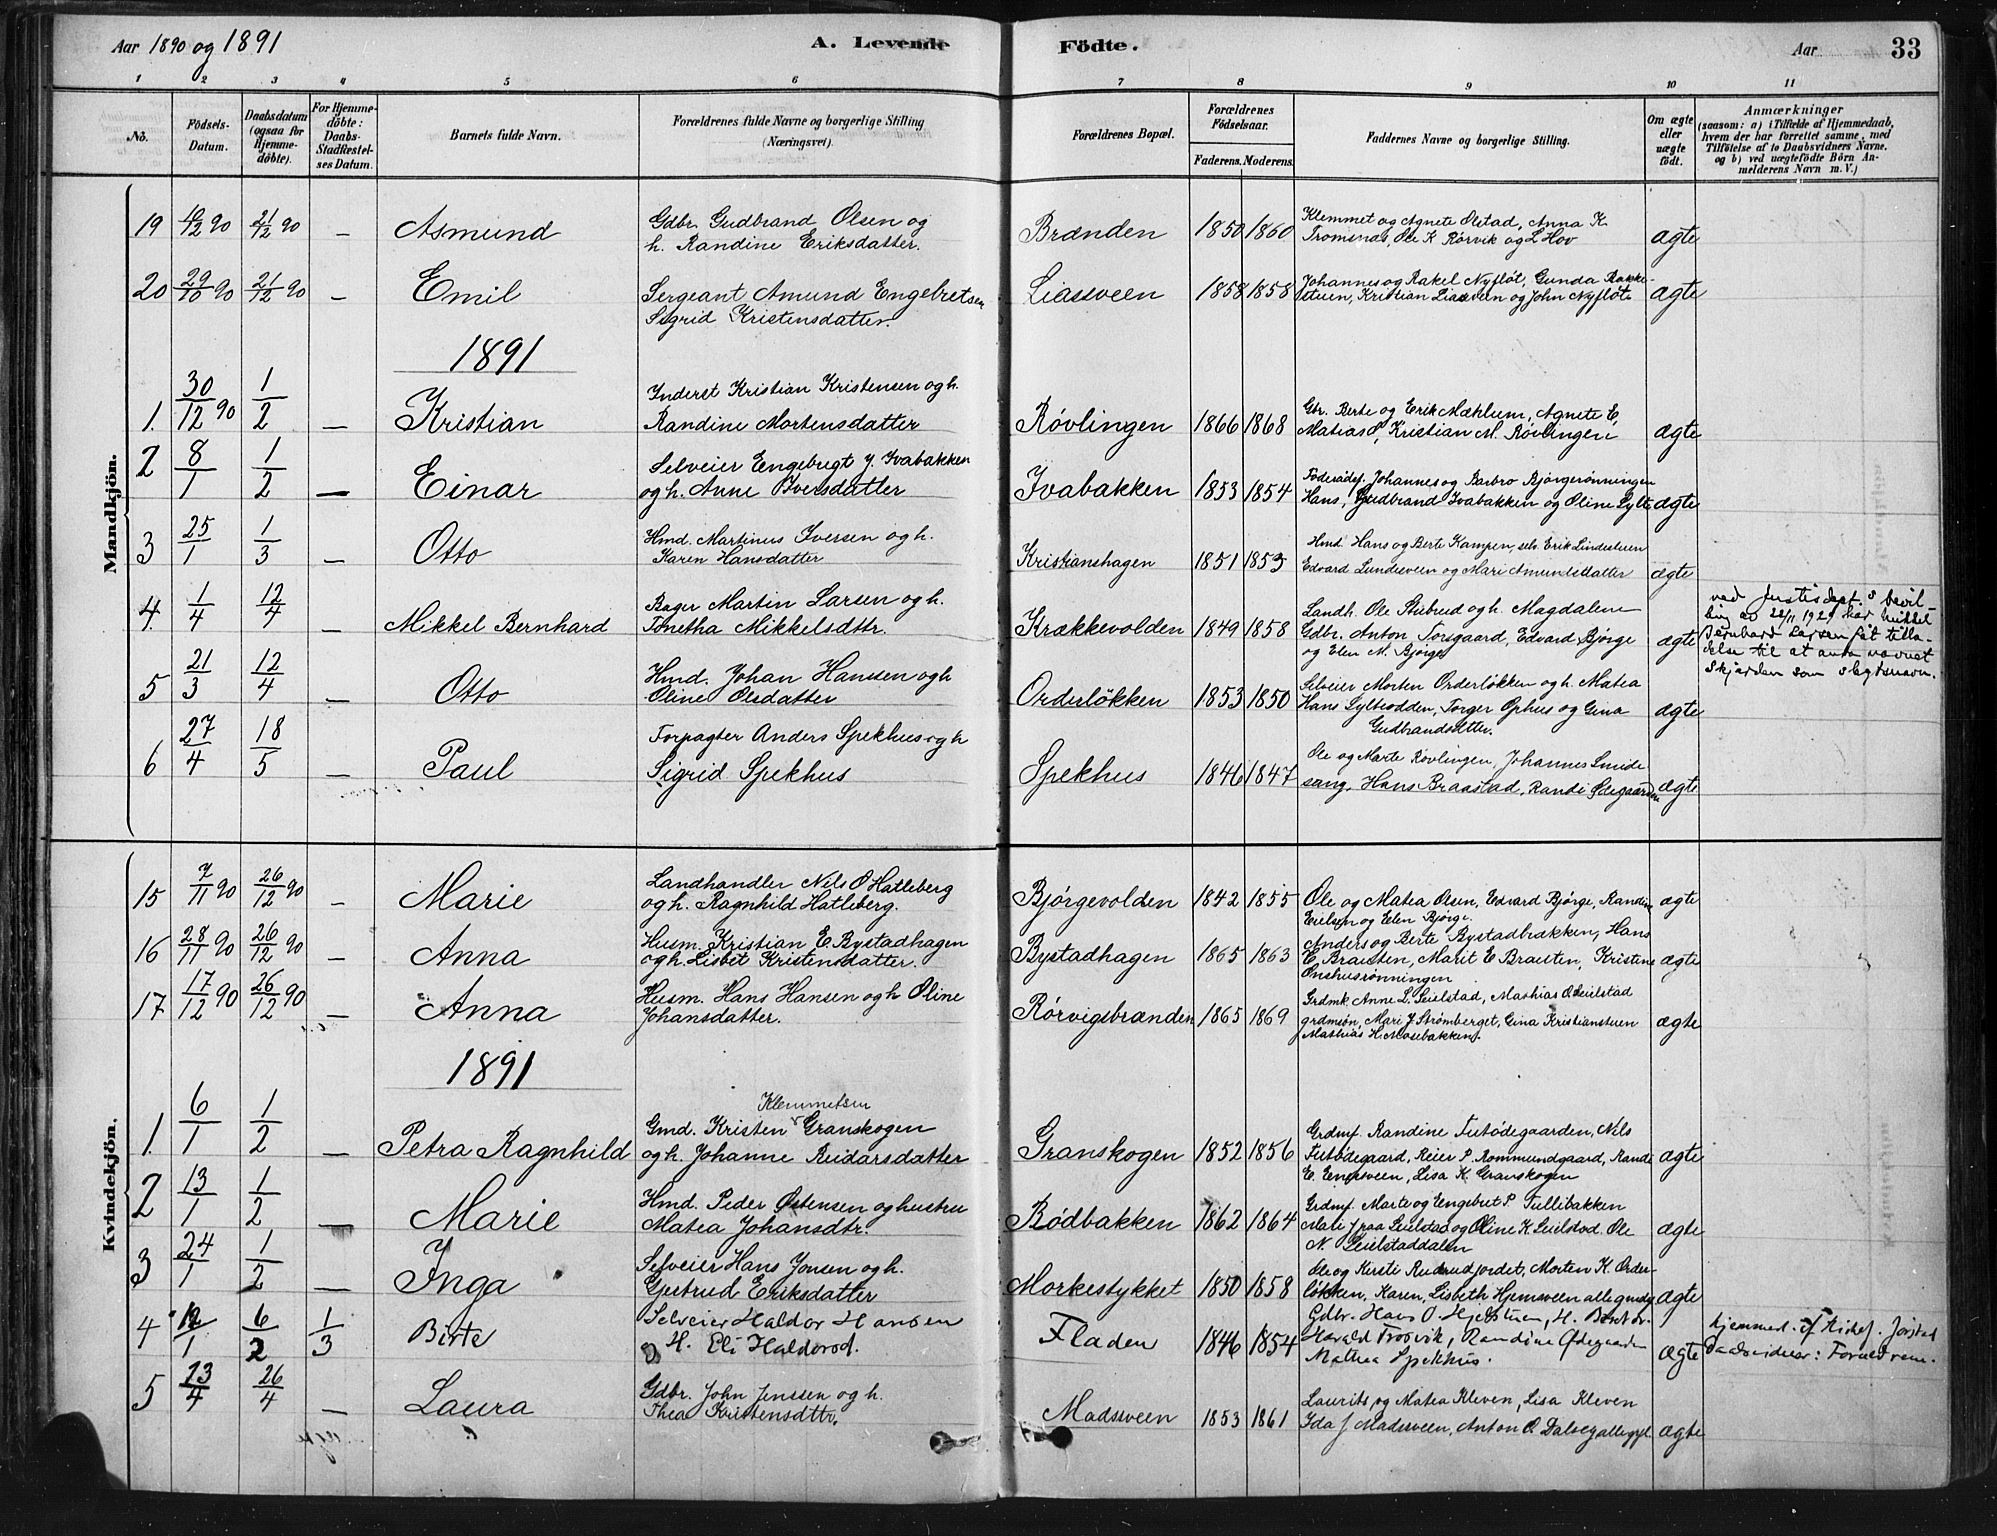 Aar 1890 og 1891
A. Levende Födte.
Aar
33
1 2 3 4 5 6 7 8 9 10 11
No.
Födsels-Datum.
Daabsdatum (ogsaa for Hjemmedöbte).
For Hjemmedöbte: Daabs-Stadfæstelses Datum.
Barnets fulde Navn.
Forældrenes fulde Navne og borgerlige Stilling (Næringsvei).
Forældrenes Bopæl.
Forældrenes Födselsaar.
Faderens. Moderens.
Faddernes Navne og borgerlige Stilling.
Om ægte eller uægte født.
Anmærkninger
(saasom: a) i Tilfælde af Hjemmedaab, hvem der har forrettet samme, med Tilföielse af to Daabsvidners Navne, og b) ved uægtefödte Börn Anmelderens Navn m. V.)
Mandkjön.
19 10/12 90 21/12 90 – Asmund
Gdbr. Gudbrand Olsen og
h. Randine Eriksdatter.
Brænden 1850 1860
Klemmet og Agnete Olstad, Anna K.
Tromsnæs, Ole K Rörvik og L Hov
ægte
20 29/10 90 21/12 90 – Emil
Sergeant Amund Engebretsen
Sigrid Kristensdatter.
Liassveen 1858 1858
Johannes og Rakel Nyflöt, Gunda Bakke-
stuen, Kristian Liasveen og John Nyflöt
ægte
1891
1. 30/12 90 1/2 – Kristian
Inderst Kristian Kristensen og h.
Randine Mortensdatter
Røvlingen 1866 1868
Gbr. Berte og Erik Mæhlum, Agnete E,
Matias O, Kristian M. Røvlingen
ægte
2 8/1 1/2 – Einar
Selveier Engebrigt J. Ivabakken
og h. Anne Iversdatter
Ivabakken 1853 1854
Föderådsf. Johannes og Barbro Bjørgerønningen
Hans, Gudbrand Ivabakken og Oline Sylte
ægte
3 25/1 1/3 – Otto
Hmd. Martinus Iversen og h.
Karen Hansdatter
Kristianshagen 1851 1853
Hmd. Hans og Berte Kampen, selv. Erik Lindestuen
Edvard Lundesveen og Mari Amundsdatter
ægte
4. 1/4 12/4 – Mikkel Bernhard
Bager Martin Larsen og h.
Tonetha Mikkelsdttr.
Krækkevolden 1849 1858
Landh. Ole Stubrud og h. Magdalene
Gdbr. Anton Torsgaard, Edvard Bjørge
og Elen N. Bjørge
ægte
ved Justisdept.s bevil-
ling av 22/11 1929 har Mikkel
Bernhard Larsen fåt tilla-
delse til at anta navnet
Skjærden som slegtsnavn.
5 21/3 12/4 Otto
Hmd. Johan Hanssen og h
Oline Olsdatter
Orderløkken 1853 1850
Selveier Morten Orderløkken og h. Matea
Hans Sylteodden, Torger Ophus og Gina
Gudbrandsdtter.
ægte
6 27/4 18/5 – Paul
Forpagter Anders Spekhus og h
Sigrid Spekhus
Spekhus 1846 1847
Ole og Marte Røvlingen, Johannes Smide
seng, Hans Braastad, Randi Ødegaarden
ægte
Kvindekjön.
15 7/11 90 26/12 90 – Marie
Landhandler Nils O Hatleberg
og h. Ragnhild Hatleberg.
Bjørgevolden 1842 1855
Ole og Matea Olsen, Edvard Bjørge, Randine
Eielsen og Elen Bjørge.
ægte
16 28/11 90 26/12 90 – Anna
Husm. Kristian E. Bystadhagen
og h. Lisbet Kristensdatter.
Bystadhagen 1865 1863
Anders og Berte Bystadbækken, Hans
E. Brausten, Marit E Brausten, Kristine
Onshusrønningen
ægte
17 17/12 90 26/12 90 – Anna
Husm. Hans Hansen og h Oline
Johansdatter.
Rørvigsbrænden 1865 1869
Grdmk. Anne L. Seielstad, Mathias O. Seielstad
grdmsøn, Mari J. Strømberget, Gina Kristianstuen
Mathias H. Mosebakken.
ægte
1891
1. 6/1 1/2 – Petra Ragnhild
Klemmetsen
Gmd. Kristen Granskogen
og h. Johanne Reidarsdatter
Granskogen 1852 1856
Grdmf. Randine Tutödegaarden, Nils
Tutödegaard, Reier P. Rommundgaard, Rande
E. Engsveen, Lisa K. Granskogen
ægte
2 13/1 1/2 – Marie
Hmd. Peder Østensen og hustru
Matea Johansdtr.
Bødbakken 1862 1864
Grdmf. Marte og Engebret P. Tullibakken
Mari J paa Seielstad og Oline K. Seielstad. Ole
N. Seielstaddalen
ægte
3 24/1 1/2 – Inga
Selveier Hans Jonsen og h.
Gjertrud Eriksdatter
Morkestykket 1850 1858
Ole og Kersti Rudsrudjordet, Morten K. Order-
løkken, Karen, Lisbeth Hjemsveen alle gmdf
ægte
4 12/1 6/2 1/3 Birte
Selveier Haldor Hansen
og H. Eli Haldorsd.
Fladen 1846 1854
Gdbr. Hans O. Hjelstuen, H. Berit
Harald Frosvik, Randine Ødegaarden
Mathea Spekhus.
ægte
Hjemmed. af Kirkes. Jorstad
Daabsvidner: Forældrene.
5 23/4 26/4 – Laura
Gdbr. John Jenssen og h.
Thea Kristensdttr.
Madsveen 1853 1861
Laurits og Matea Kleven, Lisa Kleven
Ida J Madsveen, Anton O. Dalseg alle gyl
ægte